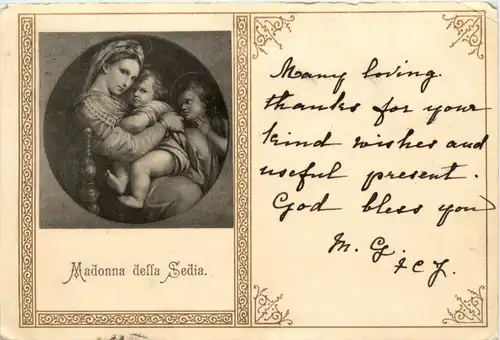 Madonna della Sedia.
Many loving
thanks for your
kind wishes and
useful present.
God bless you
M. G.